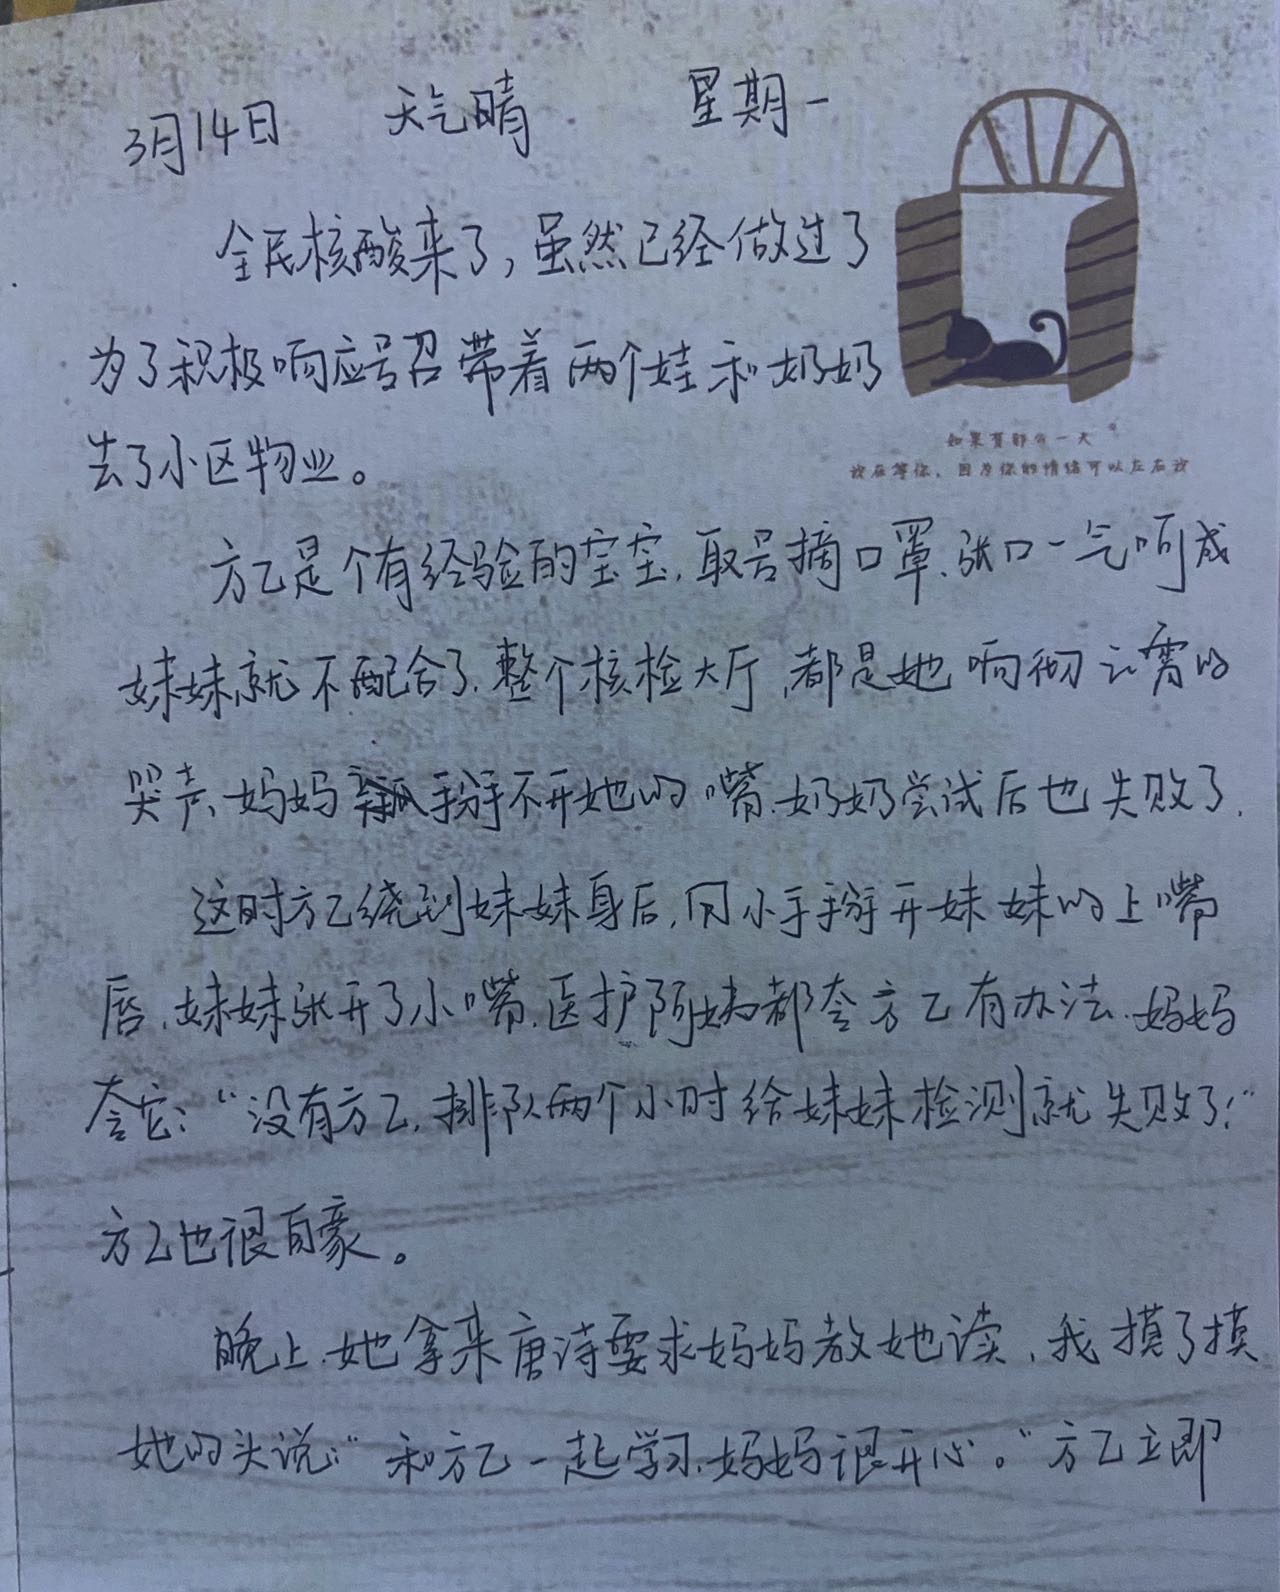 3月14日 天气晴 星期一
全民核酸来了,虽然已经做过了
为了积极响应号召带着两个娃和奶奶
去了小区物业。
如果有那么一天
我在等你,因为你的情绪可以左右我
方乙是个有经验的宝宝,取号摘口罩、张口一气呵成
妹妹就不配合了.整个核检大厅,都是她响彻云霄的
哭声、妈妈掰不开她的嘴.奶奶尝试后也失败了.
这时方乙绕到妹妹身后,用小手掰开妹妹的上嘴
唇,妹妹张开了小嘴.医护阿姨都夸方乙有办法.妈妈
夸它:“没有方乙,排队两个小时给妹妹检测就失败了!”
方乙也很自豪。
晚上.她拿来唐诗要求妈妈教她读,我摸了摸
她的头说:“和方乙一起学习.妈妈很开心。”方乙立即